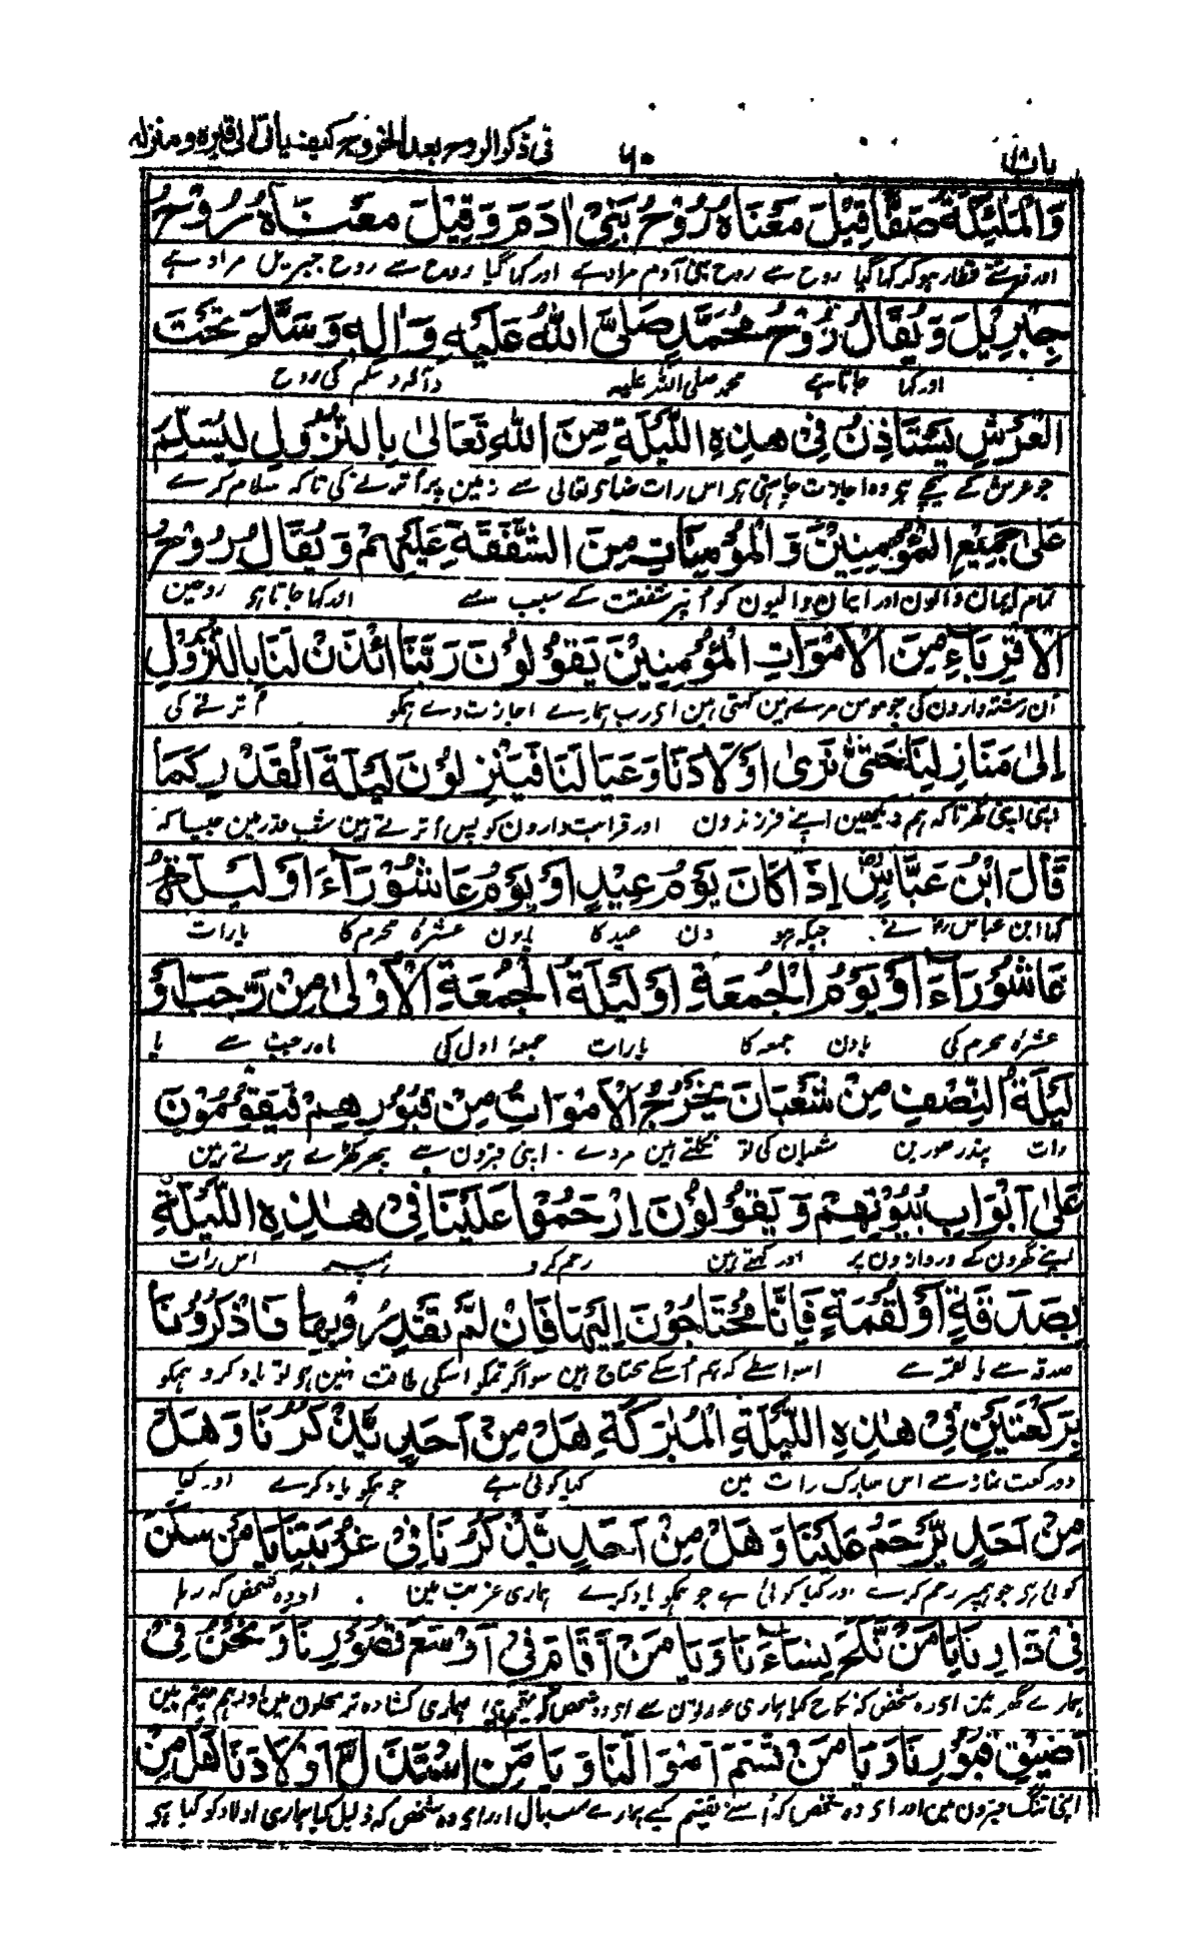 باب فی ذکر الروح بعد الخروج کیف یأتی الی قبرہ و منزلہ
۶۰
وَالْمَلٰٓئِكَةُ صَفًّا قِيْلَ مَعْنَاهُ رُوْحُ بَنِيْ اٰدَمَ وَقِيْلَ مَعْنَاهُ رُوْحُ
اور فرشتے قطار ہوکر کہا گیا روح سے روح بنی آدم مراد ہے اور کہا گیا روح سے روح جبریل مراد ہے
جِبْرِيْلَ وَيُقَالُ رُوْحُ مُحَمَّدٍ صَلَّى اللّٰهُ عَلَيْهِ وَاٰلِهٖ وَسَلَّمَ تَحْتَ
اور کہا جاتا ہے محمد صلی اللہ علیہ وآلہ وسلم کی روح
الْعَرْشِ يَسْتَاْذِنُ فِيْ هٰذِهِ اللَّيْلَةِ مِنَ اللّٰهِ تَعَالٰى بِالنُّزُوْلِ لِيُسَلِّمَ
جو عرش کے نیچے ہو وہ اجازت چاہتی ہو اس رات خدای تعالی سے زمین پر اُترنے کی تاکہ سلام کرے
عَلٰى جَمِيْعِ الْمُؤْمِنِيْنَ وَالْمُؤْمِنَاتِ مِنَ الشَّفَقَةِ عَلَيْهِمْ وَيُقَالُ رُوْحُ
تمام ایمان والون اور ایمان والیون کو اُنپر شفقت کے سبب سے اور کہا جاتا ہو روحین
الْاَقْرِبَآءِ مِنَ الْاَمْوَاتِ الْمُؤْمِنِيْنَ يَقُوْلُوْنَ رَبَّنَا ائْذَنْ لَنَا بِالنُّزُوْلِ
اُن رشتہ دارون کی جو مومن مرے ہین کہتی ہین ای رب ہمارے اجازت دے ہمکو اُترنے کی
اِلٰى مَنَازِلِنَا حَتّٰى نَرٰى اَوْلَادَنَا وَعِيَالَنَا فَيَنْزِلُوْنَ لَيْلَةَ الْقَدْرِ كَمَا
اپنی اپنی گھر تاکہ ہم دیکھین اپنے فرزندون اور قرابت دارون کو پس اُترتے ہین شب قدر مین جیسا کہ
قَالَ ابْنُ عَبَّاسٍ اِذَا كَانَ يَوْمُ عِيْدٍ اَوْ يَوْمُ عَاشُوْرَآءَ اَوْ لَيْلَةُ
کہا ابن عباس رض نے جبکہ ہو دن عید کا یا دن عشرۂ محرم کا یا رات
عَاشُوْرَآءَ اَوْ يَوْمُ الْجُمُعَةِ اَوْ لَيْلَةُ الْجُمُعَةِ الْاُوْلٰى مِنْ رَّجَبَ اَوْ
عشرۂ محرم کی یا دن جمعہ کا یا رات جمعۂ اول کی ماہ رجب سے یا
لَيْلَةُ النِّصْفِ مِنْ شَعْبَانَ يَخْرُجُ الْاَمْوَاتُ مِنْ قُبُوْرِهِمْ فَيَقُوْمُوْنَ
رات پندرھوین شعبان کی تو نکلتے ہین مردے اپنی قبرون سے پھر کھڑے ہوتے ہین
عَلٰى اَبْوَابِ بُيُوْتِهِمْ وَيَقُوْلُوْنَ اِرْحَمُوْا عَلَيْنَا فِيْ هٰذِهِ اللَّيْلَةِ
اپنے گھرون کے دروازون پر اور کہتے ہین رحم کرو ہمپر اس رات
بِصَدَقَةٍ اَوْ لُقْمَةٍ فَاِنَّا مُحْتَاجُوْنَ اِلَيْهَا فَاِنْ لَمْ تَقْدِرُوْا بِهَا فَاذْكُرُوْنَا
صدقہ سے یا لقمہ سے اسواسطے کہ ہم اُسکے محتاج ہین سو اگر تمکو اسکی طاقت نہین ہو تو یاد کرو ہمکو
بِرَكْعَتَيْنِ فِيْ هٰذِهِ اللَّيْلَةِ الْمُبٰرَكَةِ هَلْ مِنْ اَحَدٍ يَّذْكُرُنَا وَهَلْ
دو رکعت نماز سے اس مبارک رات مین کیا کوئی ہے جو ہمکو یاد کرے اور کیا
مِنْ اَحَدٍ يَّرْحَمُ عَلَيْنَا وَهَلْ مِنْ اَحَدٍ يَّذْكُرُنَا فِيْ غُرْبَتِنَا يَا مَنْ سَكَنَ
کوئی ہو جو ہمپر رحم کرے اور کیا کوئی ہے جو ہمکو یاد کرے ہماری غربت مین اے وہ شخص کہ رہا
فِيْ دَارِنَا يَا مَنْ نَّكَحَ نِسَآءَنَا وَيَا مَنْ اَقَامَ فِيْ اَوْسَعِ قُصُوْرِنَا وَنَحْنُ فِيْ
ہمارے گھر مین ای وہ شخص کہ نکاح کیا ہماری عورتون سے ای وہ شخص کہ مقیم ہی ہماری کشادہ تر محلون مین اور ہم مقیم ہین
اَضْيَقِ قُبُوْرِنَا وَيَا مَنْ قَسَمَ اَمْوَالَنَا وَيَا مَنِ اسْتَذَلَّ اَوْلَادَنَا هَلْ مِنْ
اپنی تنگ قبرون مین اور ای وہ شخص کہ اُسنے تقسیم کیے ہمارے سب مال اور ای وہ شخص کہ ذلیل کیا ہماری اولاد کو کیا ہی